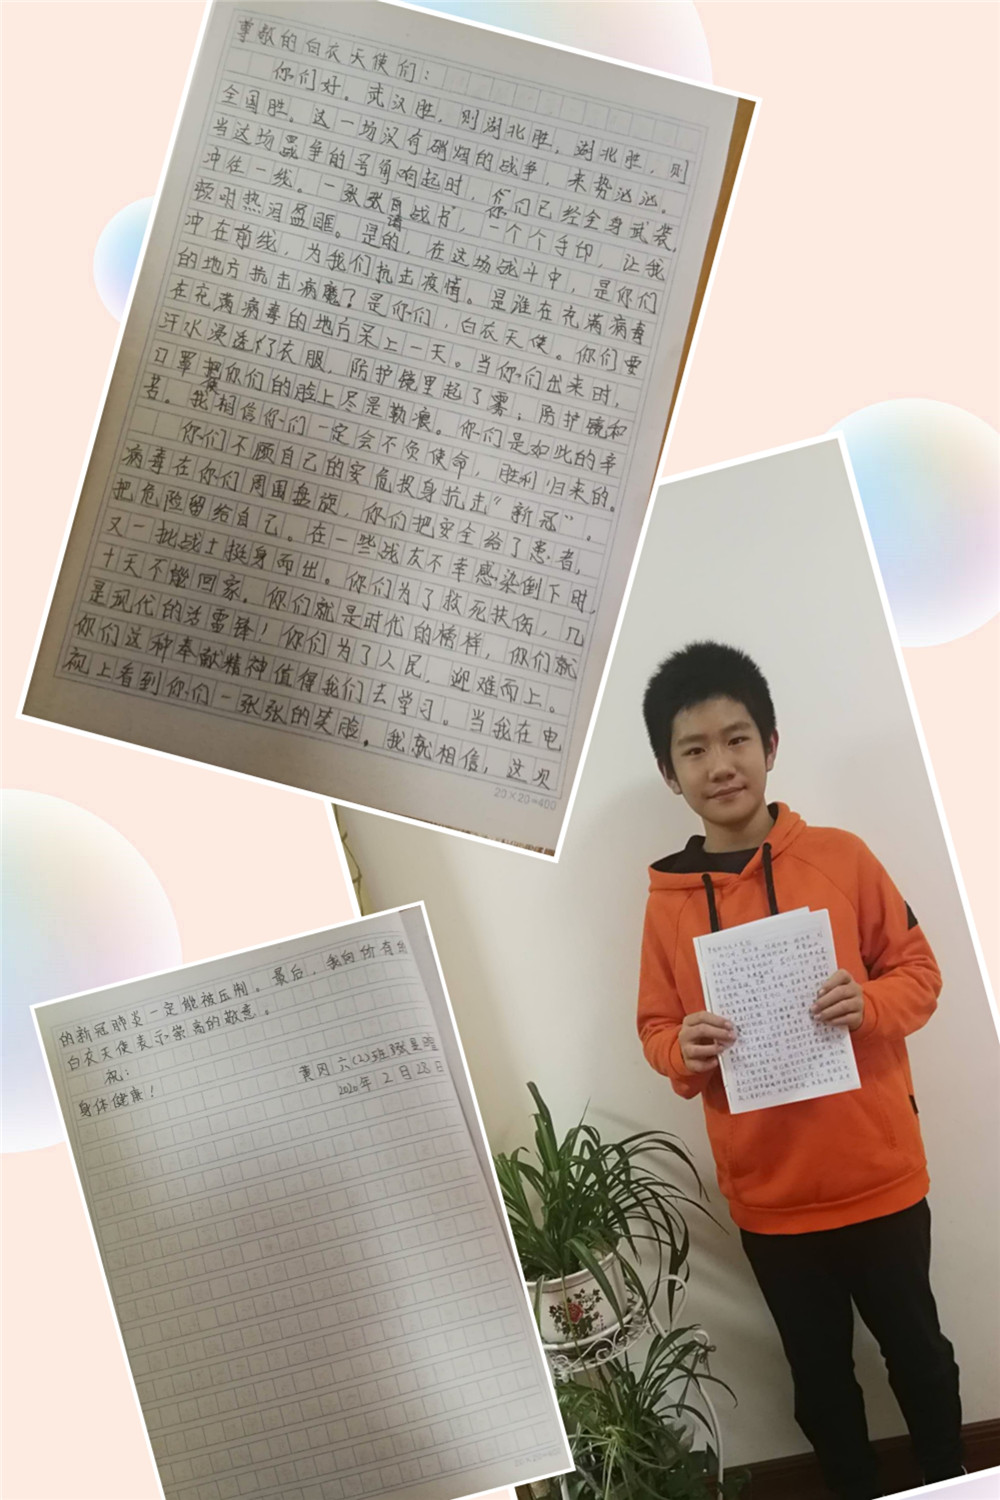 尊敬的白衣天使们：
你们好。武汉胜，则湖北胜，湖北胜，则
全国胜。这一场没有硝烟的战争，来势汹汹。
当这场战争的号角响起时，你们已经全身武装，
冲往一线。一张张请战书，一个个手印，让我
顿时热泪盈眶。是的，在这场战斗中，是你们
冲在前线，为我们抗击疫情。是谁在充满病毒
的地方抗击病魔？是你们，白衣天使。你们要
在充满病毒的地方呆上一天。当你们出来时，
汗水浸透了衣服，防护镜里起了雾，防护镜和
口罩使你们的脸上尽是勒痕。你们是如此的辛
苦。我相信你们一定会不负使命，胜利归来的。
你们不顾自己的安危投身抗击“新冠”。
病毒在你们周围盘旋，你们把安全给了患者，
把危险留给自己。在一些战友不幸感染倒下时，
又一批战士挺身而出。你们为了救死扶伤，几
十天不能回家。你们就是时代的榜样，你们就
是现代的活雷锋！你们为了人民，迎难而上。
你们这种奉献精神值得我们去学习。当我在电
视上看到你们一张张的笑脸，我就相信，这次
20×20=400
的新冠肺炎一定能被压制。最后，我向所有
白衣天使表示崇高的敬意。
祝：
身体健康！
黄冈 六(2)班
2020年2月28日
20×20=400